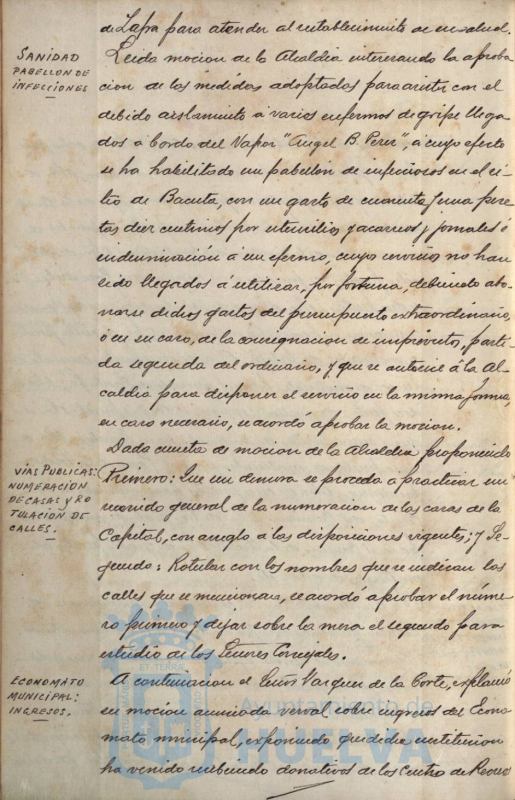 de Lapa para atender al restablecimiento de su salud.
SANIDAD
PABELLON DE
INFECCIONES
Leida mocion de la Alcaldia interesando la aproba
cion de las medidas adoptadas para asistir con el
debido aislamiento a varios enfermos de gripe llega
dos a bordo del Vapor "Angel B. Perez", a cuyo efecto
se ha habilitado un pabellon de infecciosos en el si-
tio de Bacuta, con un gasto de cuarenta y una pese
tas diez centimos por utensilios y acarreos y jornales é
indemnización a un efermo, cuyos servicios no han
sido llegados á utilizar, por fortuna, debiendo abo-
narse dichos gastos del presupuesto extraordinario,
ó en su caso, de la consignacion de imprevistos, parti-
da segunda del ordinario, y que se autorice á la Al-
caldia para disponer el servicio en la misma forma,
en caso necesario, se acordó aprobar la mocion.
VIAS PUBLICAS:
NUMERACION
DE CASAS Y RO
TULACION DE
CALLES.
Dada cuenta de mocion de la Alcaldia proponiendo
Primero: Que sin demora se proceda a practicar un
recorrido general de la numeracion de las casas de la
Capital, con arreglo a las disposiciones vigentes; y Se
gundo: Rotular con los nombres que se indican las
calles que se mencionan, se acordó aprobar el núme
ro primero y dejar sobre la mesa el segundo para
estudio de los Señores Concejales.
ECONOMATO
MUNICIPAL:
INGRESOS.
A continuacion el Señor Vazquez de la Corte, explanó
su mocion anunciada verbal sobre ingresos del Econo
mato municipal, exponiendo que dicha institucion
ha venido recibiendo donativos de los Centro de Recreo
ET TERRÆ
Ayuntamiento de
HUELVA